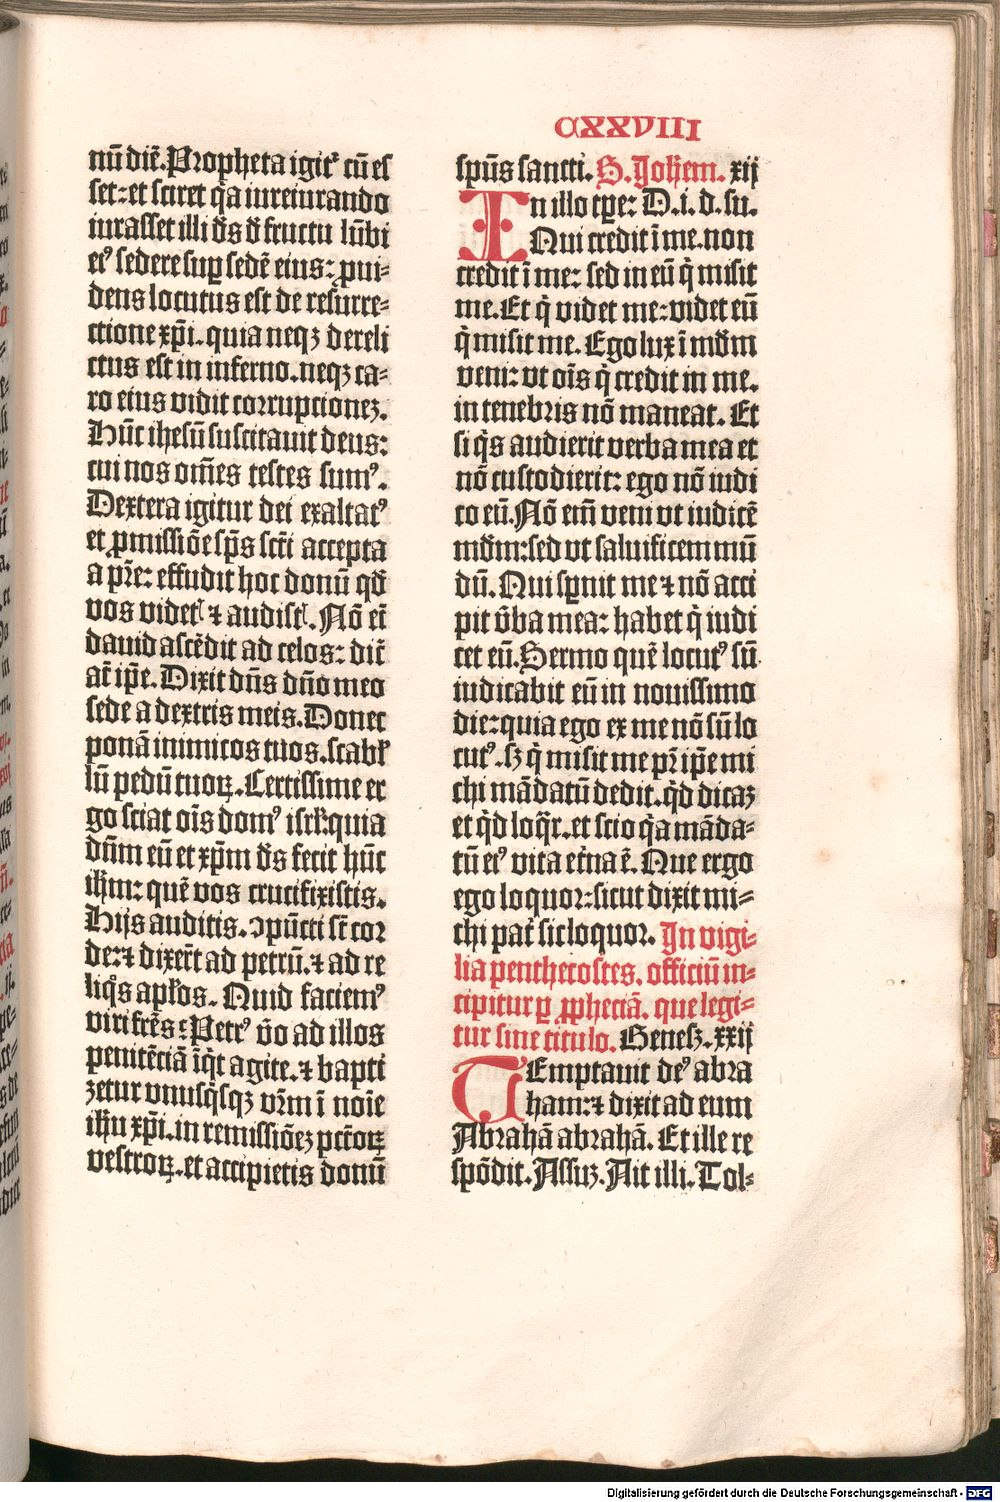 CXXVIII
nū diē. Propheta igit᷑ cū es
set: et sciret q̄a iureiurando
iurasset illi d̄s d̄ fructu lūbi
eiꝰ sedere suꝑ sedē eius: ꝓui-
dens locutus est de resurre-
ctione xp̄i. quia neqꝫ dereli
ctus est in inferno. neqꝫ ca-
ro eius vidit corrupcioneꝫ.
Hūc ihesū suscitauit deus:
cui nos om̄es testes sumꝰ.
Dextera igitur dei exaltatꝰ
et ꝓmissiōe sp̄s sc̄ti accepta
a pr̄e: effudit hoc donū qd̄
vos videtꝭ ⁊ audistꝭ. Nō ei̅
dauid ascēdit ad celos: dic̄
at̄ ip̄e. Dixit dn̄s dn̄o meo
sede a dextris meis. Donec
ponā inimicos tuos. scabł
lū pedū tuoꝝ. Certissime er
go sciat oīs domꝰ isrł: quia
dn̄m eū et xp̄m d̄s fecit hūc
ih̄m: quē vos crucifixistis.
Hijs auditis. ꝯpūcti st̄ cor
de: ⁊ dixer̄t ad petrū. ⁊ ad re
liq̊s apłos. Quid faciemꝰ
viri fr̄es: Petrꝰ v̄o ad illos
penitēciā īq̄t agite. ⁊ bapti
zetur vnusq̄sqꝫ vr̄m ī noīe
ih̄u xp̄i. in remissiōeꝫ pct̄oꝝ
vestroꝝ. et accipietis donū
spūs sancti. S. Joh̄em. xij
In illo tꝑe: D. i. d. su.
Qui credit ī me. non
credit ī me: sed in eū q̄ misit
me. Et q̄ videt me: videt eū
q̄ misit me. Ego lux ī mūdm
veni: vt oīs q̄ credit in me.
in tenebris nō maneat. Et
si q̄s audierit verba mea et
nō custodierit: ego nō iudi
co eū. Nō em̄ veni vt iudicē
mūdm: sed vt saluificem mū
dū. Qui sꝑnit me ⁊ nō acci
pit v̄ba mea: habet q̄ iudi
cet eū. Sermo quē locutꝰ sū.
iudicabit eū in nouissimo
die: quia ego ex me nō sū lo
cutꝰ. sꝫ q̄ misit me pr̄ ip̄e mi
chi mādatū dedit. qd̄ dicaꝫ
et qd̄ loq̄r. et scio q̄a māda-
tū eiꝰ vita et̄na ē. Que ergo
ego loquor: sicut dixit mi-
chi pat̄ sic loquor. In vigi-
lia penthecostes. officiū in-
cipitur ꝑ ꝓpheciā. que legi-
tur sine titulo. Genesꝫ. xxij
Temptauit deꝰ abra
ham: ⁊ dixit ad eum
Abrahā abrahā. Et ille re
spōdit. Assuꝫ. Ait illi. Tol-
Digitalisierung gefördert durch die Deutsche Forschungsgemeinschaft - DFG